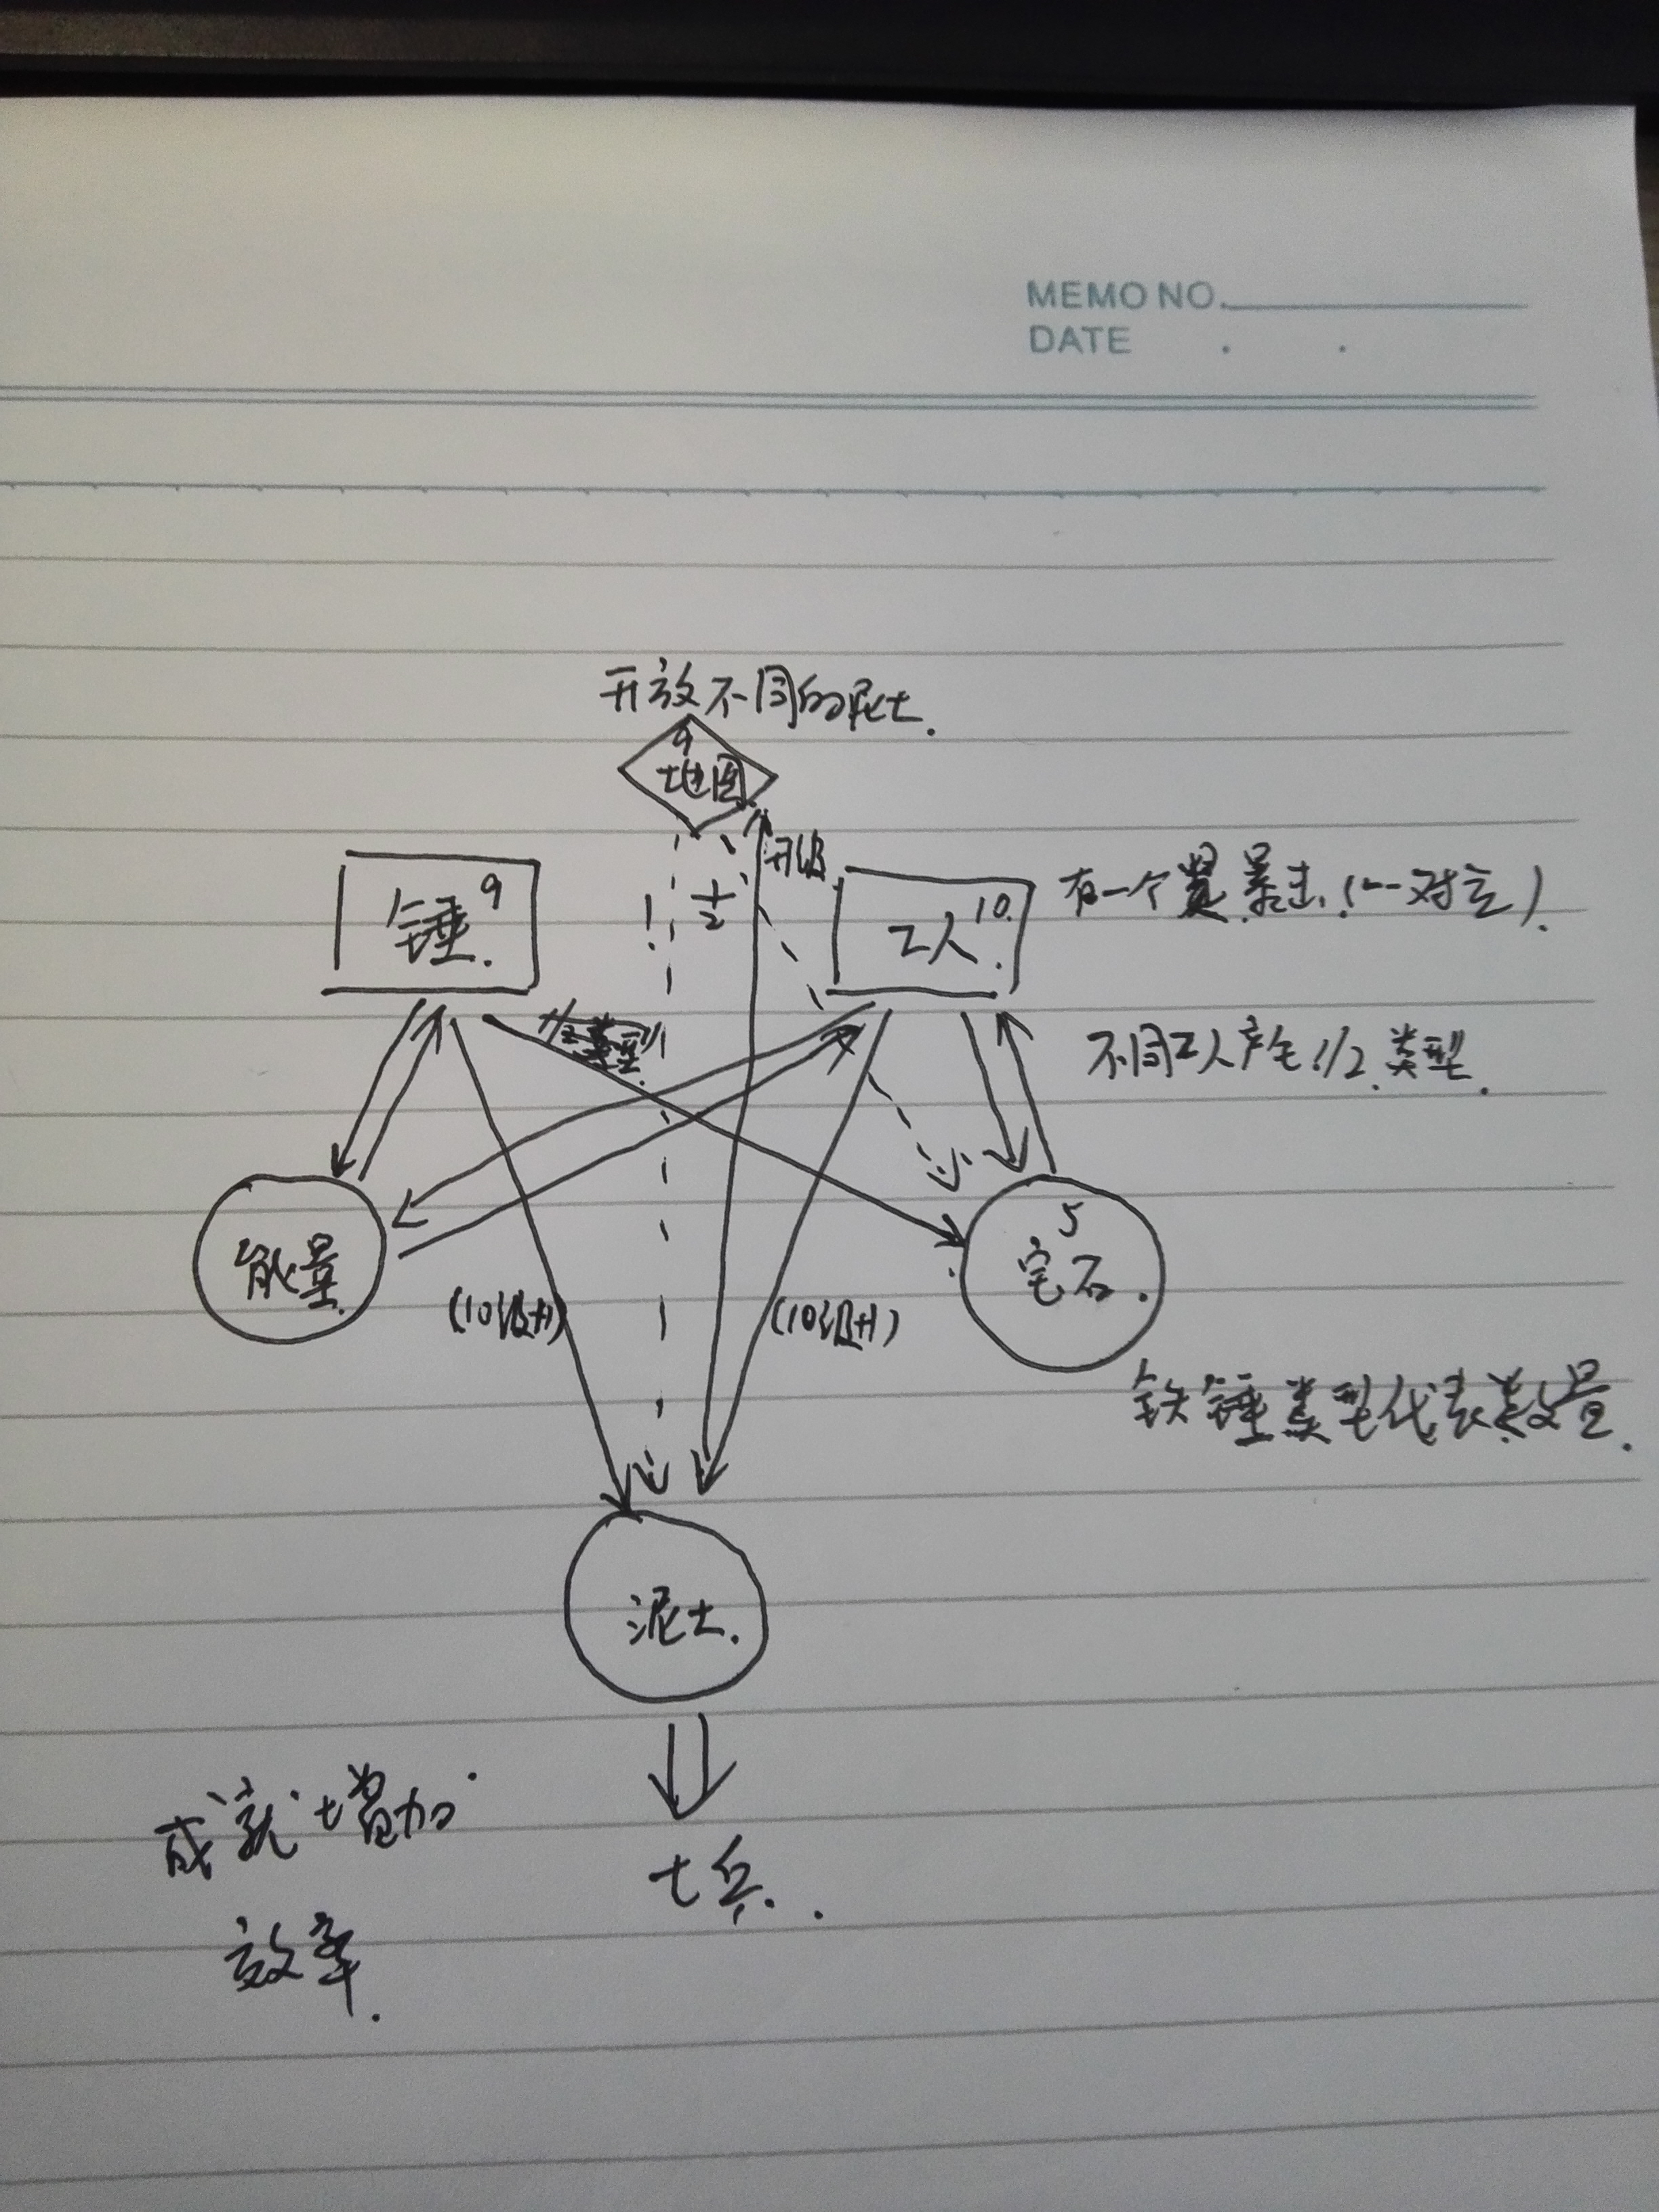 MEMO NO.
DATE . .
开放不同的泥土.
9
地图
升级
1/2
锤. 9
工人. 10.
有一个 暴击.(一一对应).
1/2类型
不同工人产生1/2.类型.
能量.
(10级升)
(10级升)
5
宝石.
铁锤类型代表数量.
泥土.
成就增加
效率.
士兵.